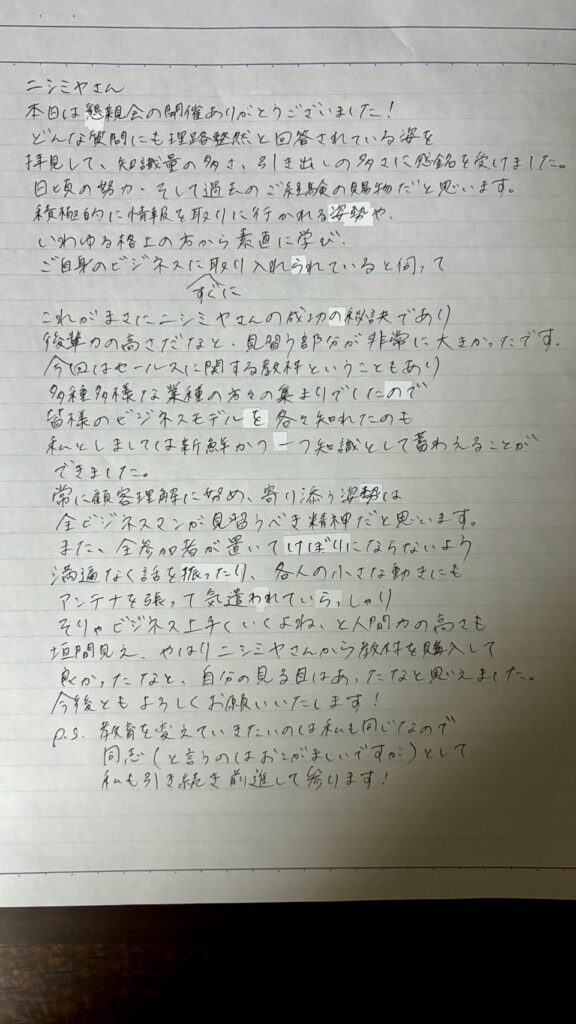 ニシミヤさん
本日は懇親会の開催ありがとうございました!
どんな質問にも理路整然と回答されている姿を
拝見して、知識量の多さ、引き出しの多さに感銘を受けました。
日頃の努力、そして過去のご経験の賜物だと思います。
積極的に情報を取りに行かれる姿勢や、
いわゆる格上の方から素直に学び、
ご自身のビジネスに取り入れられていると伺って
すぐに
これがまさにニシミヤさんの成功の秘訣であり
後輩力の高さだなと、見習う部分が非常に大きかったです。
今回はセールスに関する教材ということもあり
多種多様な業種の方々の集まりでしたので
皆様のビジネスモデルを各々知れたのも
私としましては新鮮かつ一つ知識として蓄わえることが
できました。
常に顧客理解に努め、寄り添う姿勢は
全ビジネスマンが見習うべき精神だと思います。
また、全参加者が置いてけぼりにならないよう
満遍なく話を振ったり、各人の小さな動きにも
アンテナを張って気遣われていらっしゃり
そりゃビジネス上手くいくよね、と人間力の高さも
垣間見え、やはりニシミヤさんから教材を購入して
良かったなと、自分の見る目はあったなと思えました。
今後ともよろしくお願いいたします!
P.S. 教育を変えていきたいのは私も同じなので
同志(と言うのはおこがましいですが)として
私も引き続き前進して参ります!